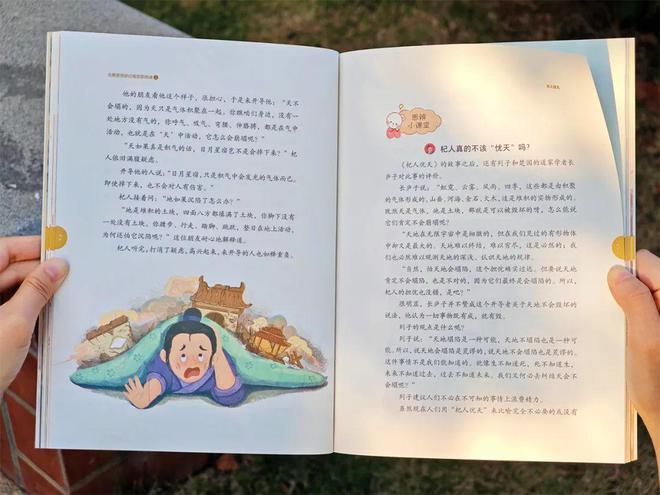 他的朋友看他这个样子，很担心，于是来开导他：“天不
会塌的，因为天只是气体积聚在一起。你瞧咱们身边，没有一
处地方没有气的，你呼气、吸气、弯腰、伸胳膊，都是在气中
活动，也就是在‘天’中活动，它怎么会崩塌呢？”
“天如果真是积的气的话，日月星宿岂不是会掉下来？”杞
人依旧满腹疑虑。
开导他的人说：“日月星宿，只是积气中会发光的气体而已，
即使掉下来，也不会对人有伤害。”
杞人接着问：“地如果沉陷了怎么办？”
“地是堆积的土块，四面八方都填满了土块，你脚下没有
一处没有土块。你踱步、行走、蹦脚、跳跃，整日在地上活动，
为何还怕它沉陷呢？”这位朋友耐心地解释道。
杞人听完，打消了疑虑，高兴起来，来开导的人也如释重负。
思辨
小课堂
杞人真的不该“忧天”吗？
《杞人忧天》的故事之后，还有列子和楚国的道家学者长
庐子对此事的评价。
长庐子说：“虹霓、云雾、风雨、四季，这些都是由积聚
的气体形成的，山岳、河海、金石、火木，这是堆积的实物形成的。
既然天是气体，地是土块，那就是可以被毁坏的呀，怎么能说
它们肯定不会崩塌呢？
“天地在无限宇宙中是细微的，但在我们见过的有形物体
中却又是最大的。天地难以终结，难以穷尽，这是必然的；我
们也必然难以观测天地的深浅，认识天地的规律。
“自然，怕天地会塌陷，这个担忧确实过远，但要说天地
肯定不会塌陷，也是不对的，因为它们最终是会塌陷的。所以，
杞人的担忧也没错，是吧？”
很明显，长庐子并不赞成这个开导者关于天地不会毁坏的
说法，他认为一切事物既有成，就有毁。
列子的观点是什么呢？
列子说：“天地塌陷是一种可能，天地不塌陷也是一种可
能。所以，说天地会塌陷是荒谬的，说天地不会塌陷也是荒谬的。
这件事情不是我们能知道的。就像生不知道死，死不知道生，
未来不知道过去，过去不知道未来，我们又何必去纠结天会不
会塌呢？”
列子建议人们不必在不可知的事情上浪费精力。
虽然现在人们用“杞人忧天”来比喻完全不必要的或没有